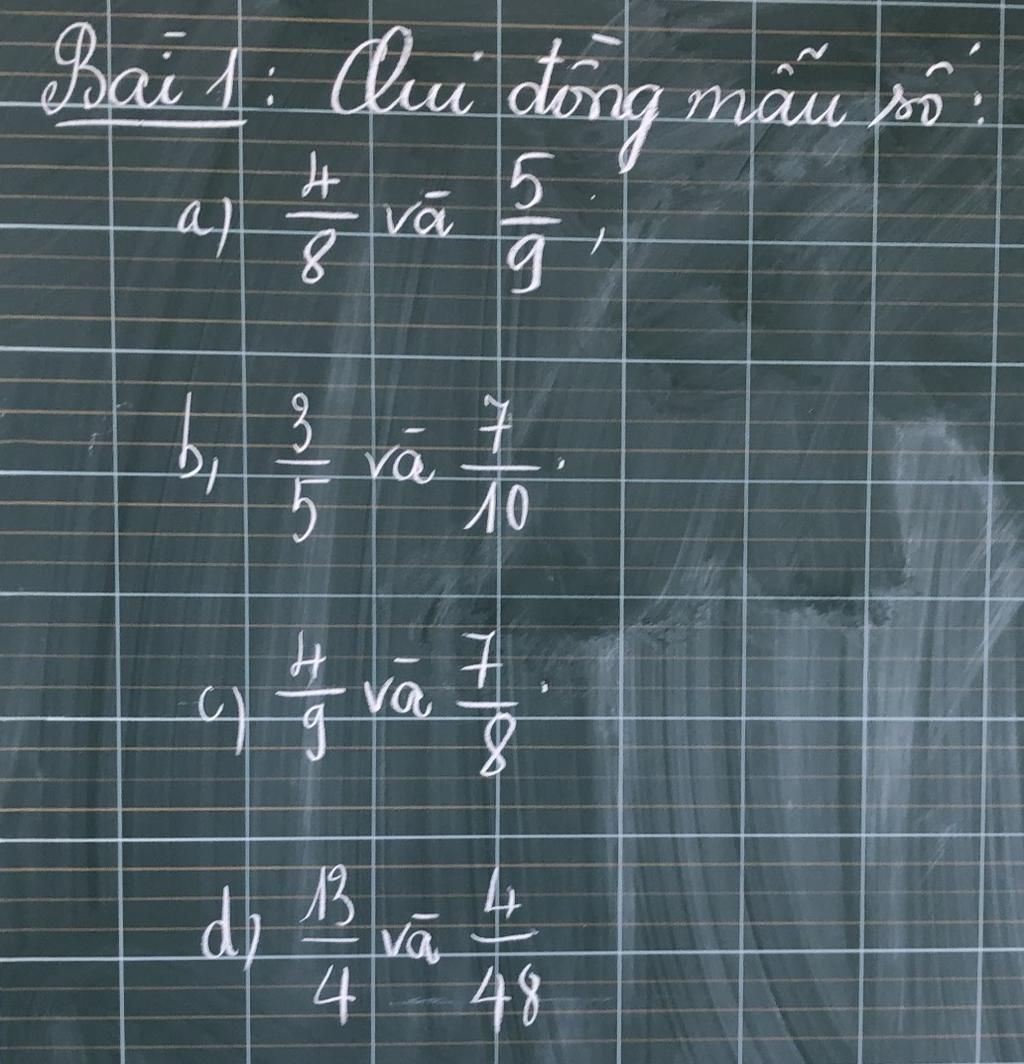 Bài 1: Qui đồng mẫu số:
a) 4/8 và 5/9;
b, 3/5 và 7/10.
c) 4/9 và 7/8.
d) 13/4 và 4/48